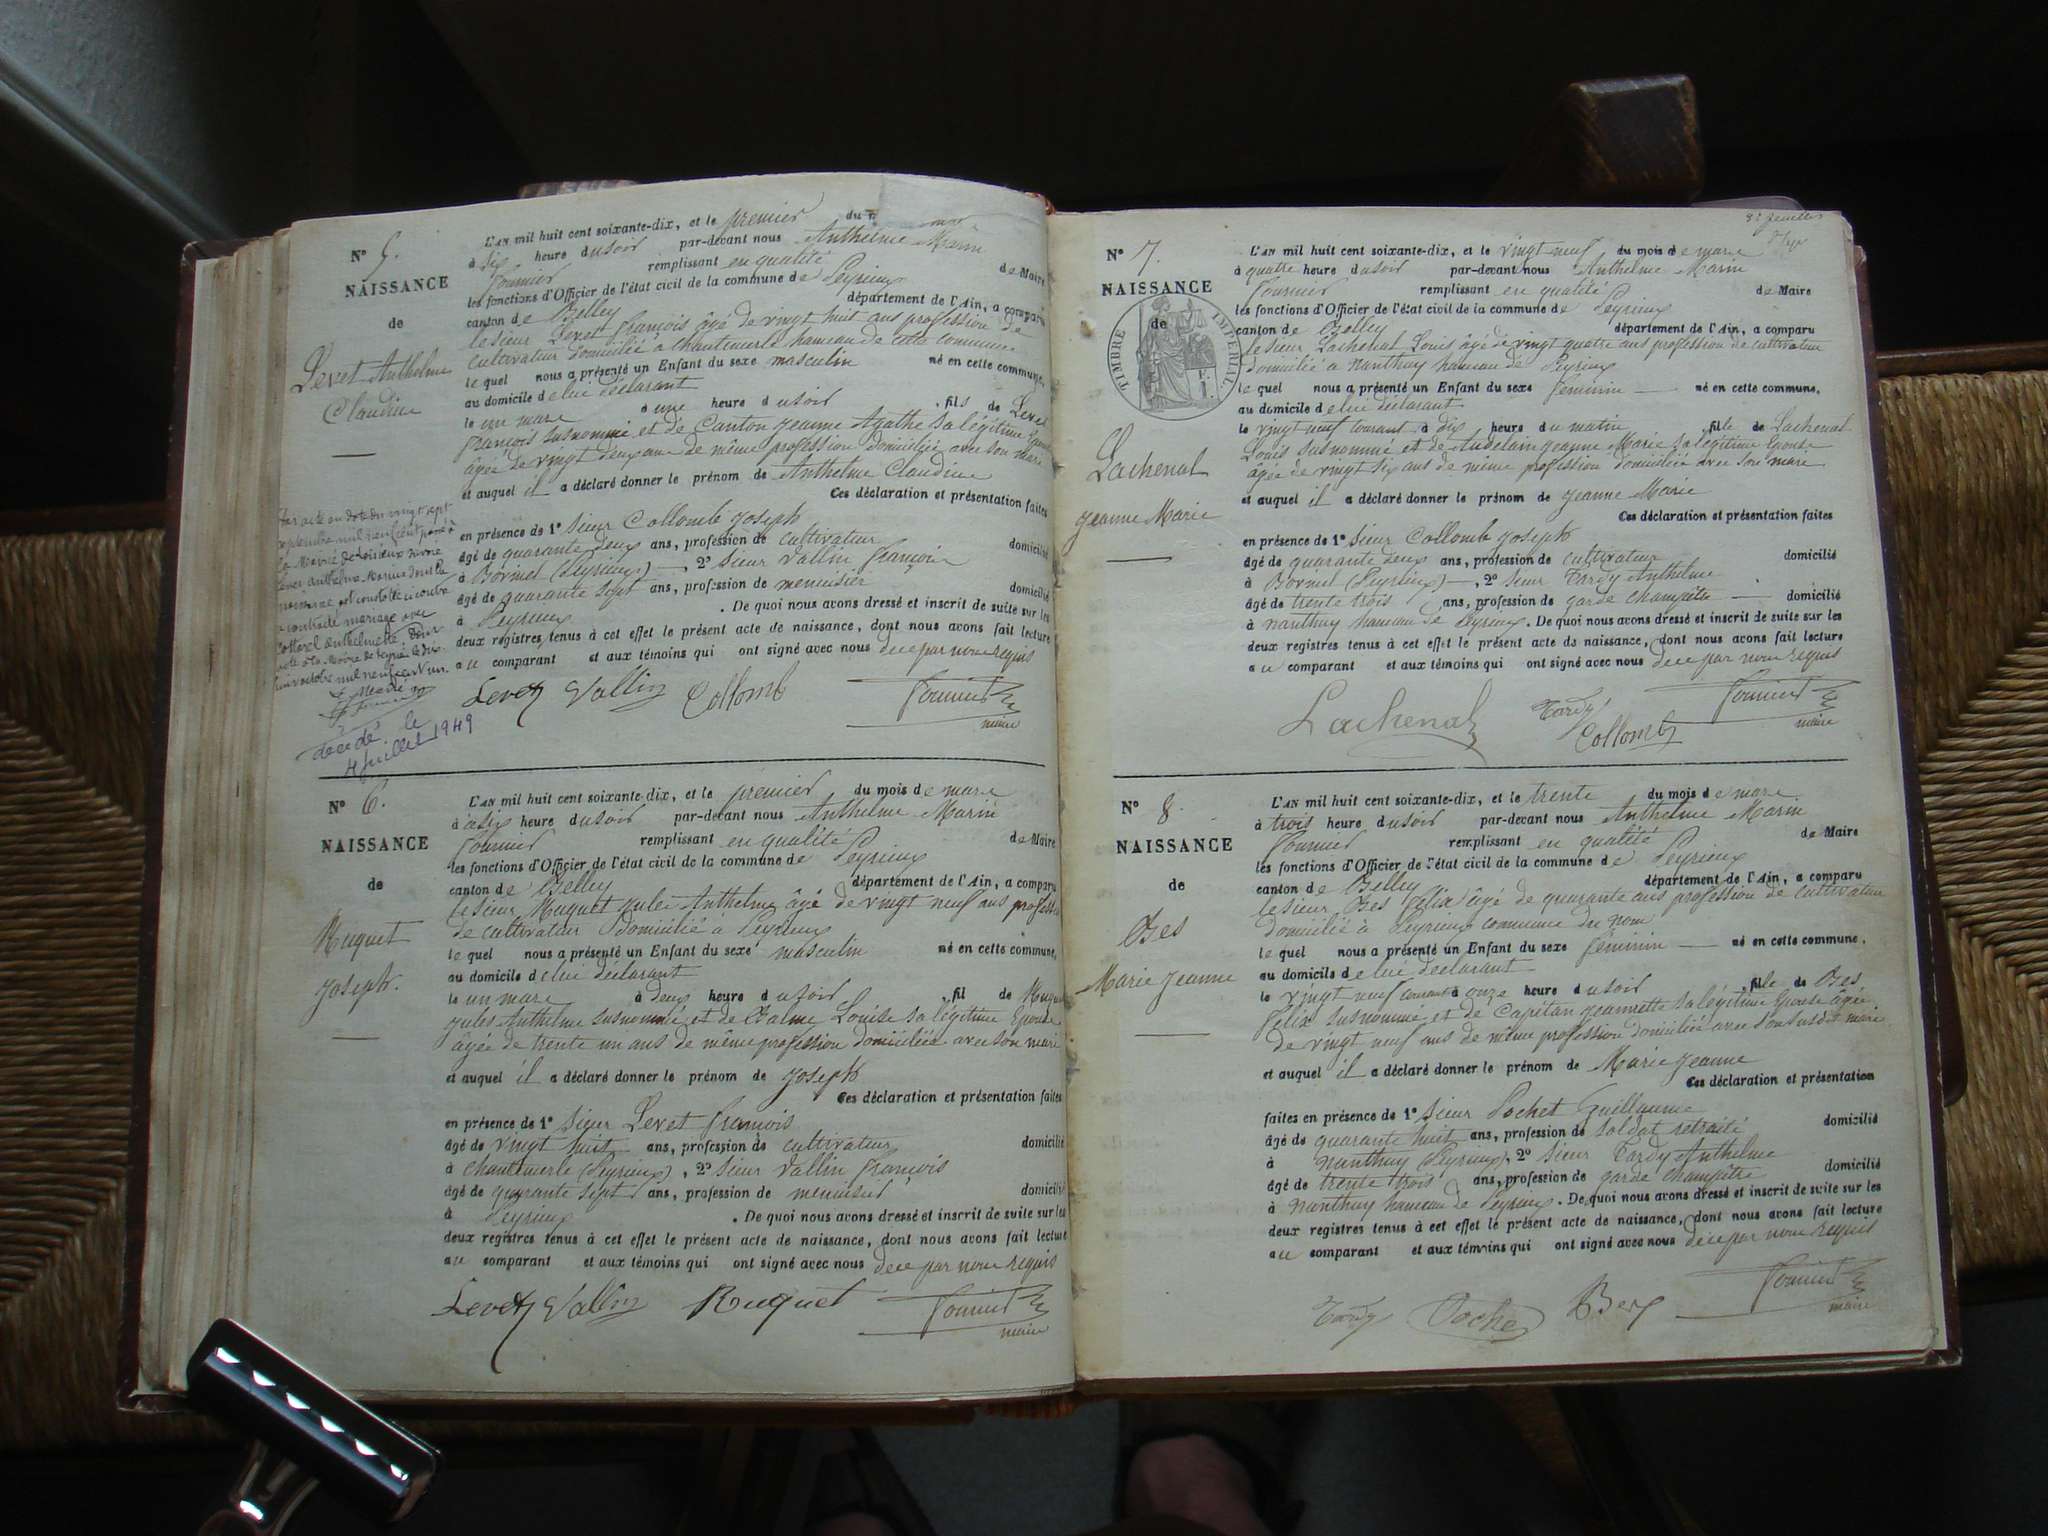 N° 5.
NAISSANCE
de
Levet Anthelme
Claudine
L'AN mil huit cent soixante-dix, et le premier du
à six heure du soir par-devant nous Anthelme Marin
Fournier remplissant en qualité de Maire
les fonctions d'Officier de l'état civil de la commune de Peyrieux
canton de Belley département de l'Ain, a comparu
le sieur Levet françois âgé de vingt huit ans profession de
cultivateur domicilié à Chantemerle hameau de cette commune
le quel nous a présenté un Enfant du sexe masculin né en cette commune,
au domicile de lui déclarant
le un mars à une heure du soir, fils de Levet
françois susnommé et de Canton jeanne Agathe sa légitime Epouse
âgée de vingt deux ans de même profession domiciliée avec son mari
et auquel il a déclaré donner le prénom de Anthelme Claudine
Ces déclaration et présentation faites
en présence de 1° sieur Collomb joseph
âgé de quarante deux ans, profession de cultivateur domicilié
à Bovinel (Peyrieux) —, 2° sieur Vallin françois
âgé de quarante sept ans, profession de menuisier domicilié
à Peyrieux. De quoi nous avons dressé et inscrit de suite sur les
deux registres tenus à cet effet le présent acte de naissance, dont nous avons fait lecture
au comparant et aux témoins qui ont signé avec nous de ce par nous requis
Levet Vallin Collomb Fournier
maire
Par acte en date du vingt sept
septembre mil neuf cent passé à
la Mairie de
Levet Anthelme
a contracté mariage avec
Anthelmette
octobre mil neuf cent un.
Le Maire
décédé le
4 juillet 1949
N° 6.
NAISSANCE
de
Ruguet
joseph.
L'AN mil huit cent soixante-dix, et le premier du mois de mars
à six heure du soir par-devant nous Anthelme Marin
Fournier remplissant en qualité de Maire
les fonctions d'Officier de l'état civil de la commune de Peyrieux
canton de Belley département de l'Ain, a comparu
le sieur Ruguet jules Anthelme âgé de vingt neuf ans profession
de cultivateur domicilié à Peyrieux
le quel nous a présenté un Enfant du sexe masculin né en cette commune,
au domicile de lui déclarant
le un mars à deux heure du soir, fil de Ruguet
jules Anthelme susnommé et de Louise sa légitime Epouse
âgée de trente un ans de même profession domiciliée avec son mari
et auquel il a déclaré donner le prénom de joseph
Ces déclaration et présentation faites
en présence de 1° sieur Levet françois
âgé de vingt huit ans, profession de cultivateur domicilié
à Chantemerle (Peyrieux), 2° sieur Vallin françois
âgé de quarante sept ans, profession de menuisier domicilié
à Peyrieux. De quoi nous avons dressé et inscrit de suite sur les
deux registres tenus à cet effet le présent acte de naissance, dont nous avons fait lecture
au comparant et aux témoins qui ont signé avec nous de ce par nous requis
Levet Vallin Ruguet Fournier
maire
N° 7.
NAISSANCE
de
TIMBRE IMPÉRIAL
Lachenal
jeanne Marie
L'AN mil huit cent soixante-dix, et le vingt neuf du mois de mars
à quatre heure du soir par-devant nous Anthelme Marin
Fournier remplissant en qualité de Maire
les fonctions d'Officier de l'état civil de la commune de Peyrieux
canton de Belley département de l'Ain, a comparu
le sieur Lachenal Louis âgé de vingt quatre ans profession de cultivateur
domicilié à Nanthuy hameau de Peyrieux
le quel nous a présenté un Enfant du sexe féminin — né en cette commune,
au domicile de lui déclarant
le vingt neuf courant à dix heure du matin, fille de Lachenal
Louis susnommé et de jeanne Marie sa légitime Epouse
âgée de vingt six ans de même profession domiciliée avec son mari
et auquel il a déclaré donner le prénom de jeanne Marie
Ces déclaration et présentation faites
en présence de 1° sieur Collomb joseph
âgé de quarante deux ans, profession de cultivateur domicilié
à Bovinel (Peyrieux) —, 2° sieur Tardy Anthelme
âgé de trente trois ans, profession de garde champêtre — domicilié
à Nanthuy hameau de Peyrieux. De quoi nous avons dressé et inscrit de suite sur les
deux registres tenus à cet effet le présent acte de naissance, dont nous avons fait lecture
au comparant et aux témoins qui ont signé avec nous de ce par nous requis
Lachenal Tardy Fournier
Collomb maire
N° 8.
NAISSANCE
de
Bes
Marie jeanne
L'AN mil huit cent soixante-dix, et le trente du mois de mars
à trois heure du soir par-devant nous Anthelme Marin
Fournier remplissant en qualité de Maire
les fonctions d'Officier de l'état civil de la commune de Peyrieux
canton de Belley département de l'Ain, a comparu
le sieur Bes félix âgé de quarante ans profession de cultivateur
domicilié à Peyrieux commune du nom
le quel nous a présenté un Enfant du sexe féminin — né en cette commune,
au domicile de lui déclarant
le vingt neuf courant à onze heure du soir, fille de Bes
félix susnommé et de Capitan jeannette sa légitime Epouse âgée
de vingt neuf ans de même profession domiciliée avec son susdit mari
et auquel il a déclaré donner le prénom de Marie jeanne
Ces déclaration et présentation
faites en présence de 1° sieur Pochet Guillaume
âgé de quarante huit ans, profession de soldat retraité domicilié
à Nanthuy (Peyrieux), 2° sieur Tardy Anthelme
âgé de trente trois ans, profession de garde champêtre domicilié
à Nanthuy hameau de Peyrieux. De quoi nous avons dressé et inscrit de suite sur les
deux registres tenus à cet effet le présent acte de naissance, dont nous avons fait lecture
au comparant et aux témoins qui ont signé avec nous de ce par nous requis
Tardy Poche Bes Fournier
maire